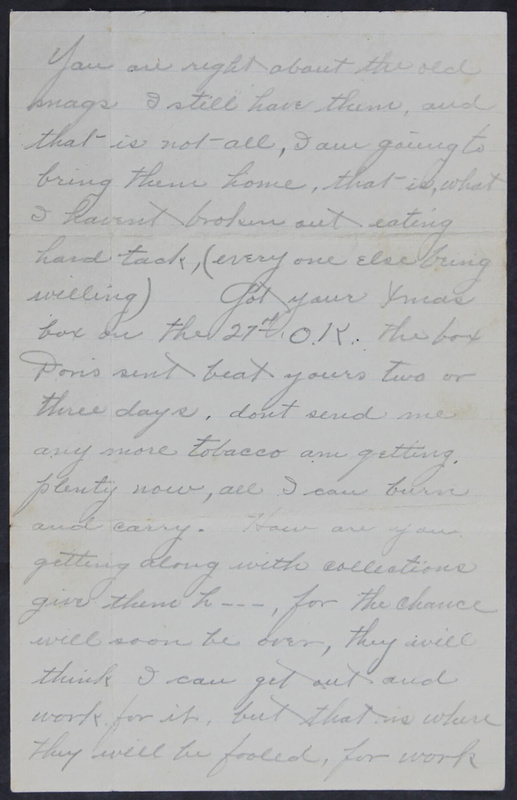 You are right about the old
snags I still have them, and
that is not all, I am going to
bring them home, that is, what
I havent broken out eating
hard tack, (every one else being
willing) Got your Xmas
box on the 27th O.K. the box
Doris sent beat yours two or
three days. dont send me
any more tobacco am getting
plenty now, all I can burn
and carry. How are you
getting along with collections
give them h---, for the chance
will soon be over, they will
think I can get out and
work for it, but that is where
they will be fooled, for work